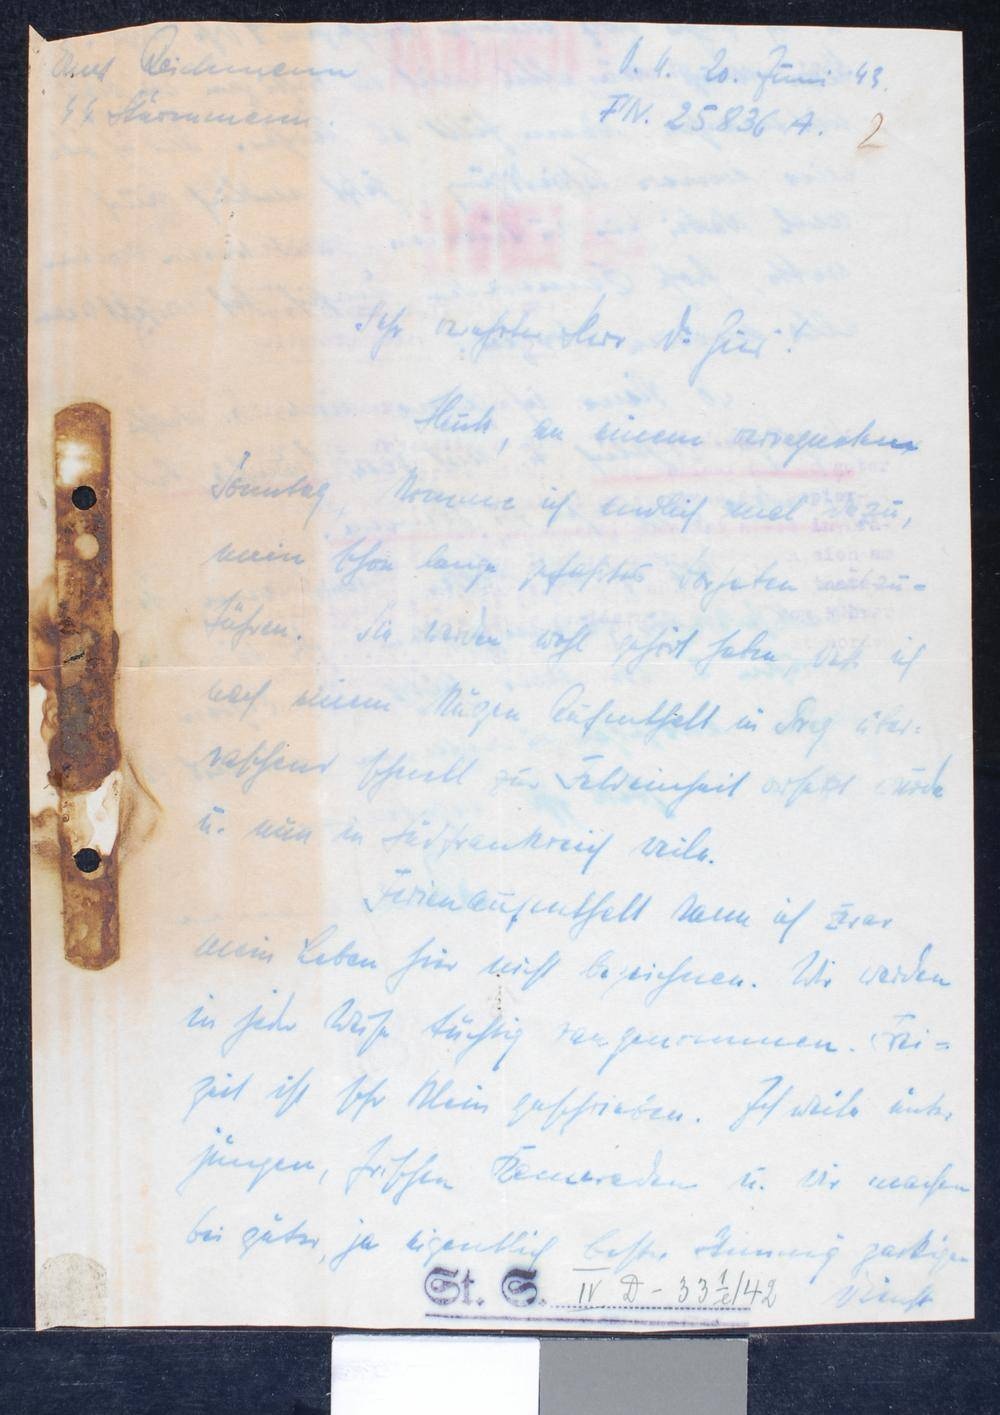 Reichmann
O. U. 20. Juni 43.
SS Sturmmann.
FN. 25836 A.
2
Sehr verehrter Herr Dr. Gies!
Heute, an einem verregneten
Sonntag, komme ich endlich mal dazu,
mein schon lange gefaßtes Vorhaben
führen. Sie werden wohl gehört haben, daß ich
nach einem kurzen Aufenthalt in Prag über-
raschend schnell zur Feldeinheit versetzt wurde
u. nun in Südfrankreich weile.
Ferienaufenthalt kann ich zwar
mein Leben hier nicht bezeichnen. Wir werden
in jeder Weise tüchtig rangenommen. Frei=
zeit ist sehr klein geschrieben. Ich weile unter
jungen, frischen Kameraden u. wir machen
bei guter, ja eigentlich bester Stimmung zackigen
Dienst
St. S. IV D - 33 /42